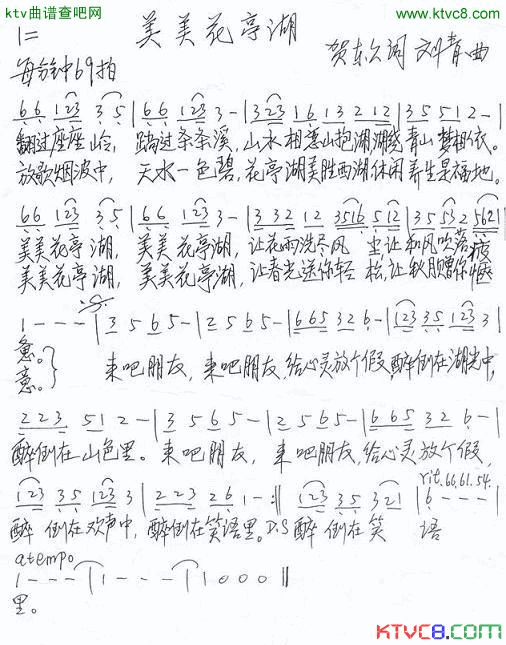 ktv曲谱查吧网
www.ktvc8.com
美美花亭湖
1=
贺东久词 刘青曲
每分钟69拍
6 6 1 2 3 3 5 | 6 6 1 2 3 3 - | 3 3 2 3 1 6 1 3 2 1 2 | 3 5 5 1 2 - |
翻过座座山岭, 踏过条条溪, 山水相恋山抱湖湖绕青山梦相依。
放歌烟波中, 天水一色碧, 花亭湖美胜西湖休闲养生是福地。
6 6 1 2 3 3 5 | 6 6 1 2 3 3 - | 3 3 2 1 2 3 5 1 6 5 1 2 | 3 5 5 3 2 5 6 2 1 |
美美花亭湖, 美美花亭湖, 让花雨洗尽风 尘让和风吹落疲
美美花亭湖, 美美花亭湖, 让春光送你轻 松, 让秋月赠你惬
1 - - - | 3 5 6 5 - | 2 5 6 5 - | 6 6 5 3 2 6 - | 1 2 3 3 5 1 2 3 3 |
惫。
意。
来吧朋友, 来吧朋友, 给心灵放个假, 醉倒在湖光中,
2 2 3 5 1 2 - | 3 5 6 5 - | 2 5 6 5 - | 6 6 5 3 2 6 - |
醉倒在山色里。来吧朋友, 来吧朋友, 给心灵放个假,
rit. 66.61.54.
1 2 3 3 5 1 2 3 3 | 2 2 3 2 6 1 - :‖ 1 2 3 3 5 3 2 1 | 6 - - - |
醉倒在欢声中, 醉倒在笑语里。D.S 醉倒在笑 语
a tempo
1 - - - | 1 - - - | 1 0 0 0 ‖
里。
KTVC8.COM